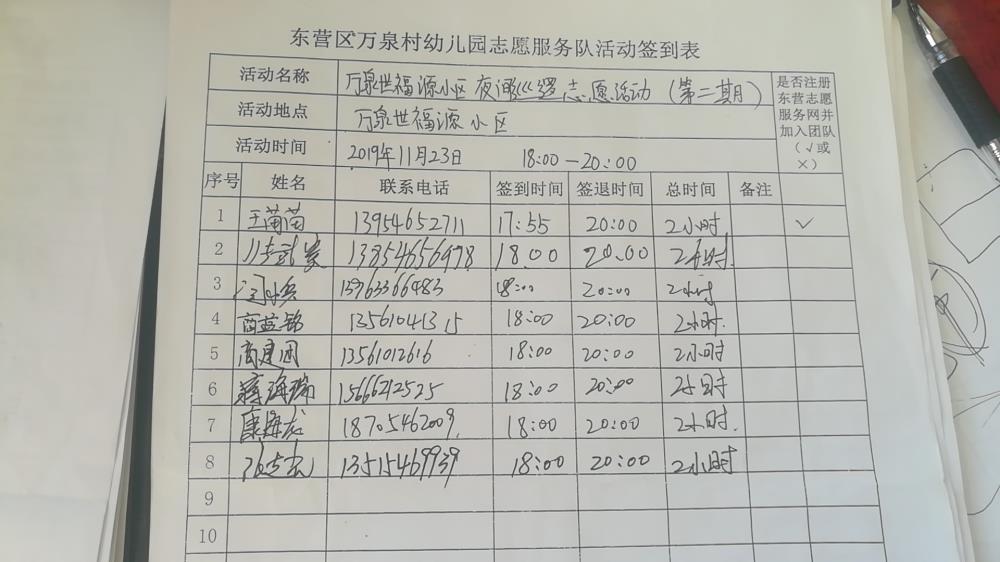 东营区万泉村幼儿园志愿服务队活动签到表
活动名称 万泉世福源小区夜间巡逻志愿活动（第二期） 是否注册东营志愿服务网并加入团队（√或×）
活动地点 万泉世福源小区
活动时间 2019年11月23日 18:00—20:00
序号 姓名 联系电话 签到时间 签退时间 总时间 备注
1 王苗苗 13954652711 17:55 20:00 2小时 √
2 13854656978 18:00 20:00 2小时
3 闫小兵 13963366483 18:00 20:00 2小时
4 商益铭 18:00 20:00 2小时
5 商建国 13561012616 18:00 20:00 2小时
6 蒋海瑞 15666212525 18:00 20:00 2小时
7 康海龙 18705462009 18:00 20:00 2小时
8 13515469939 18:00 20:00 2小时
9
10